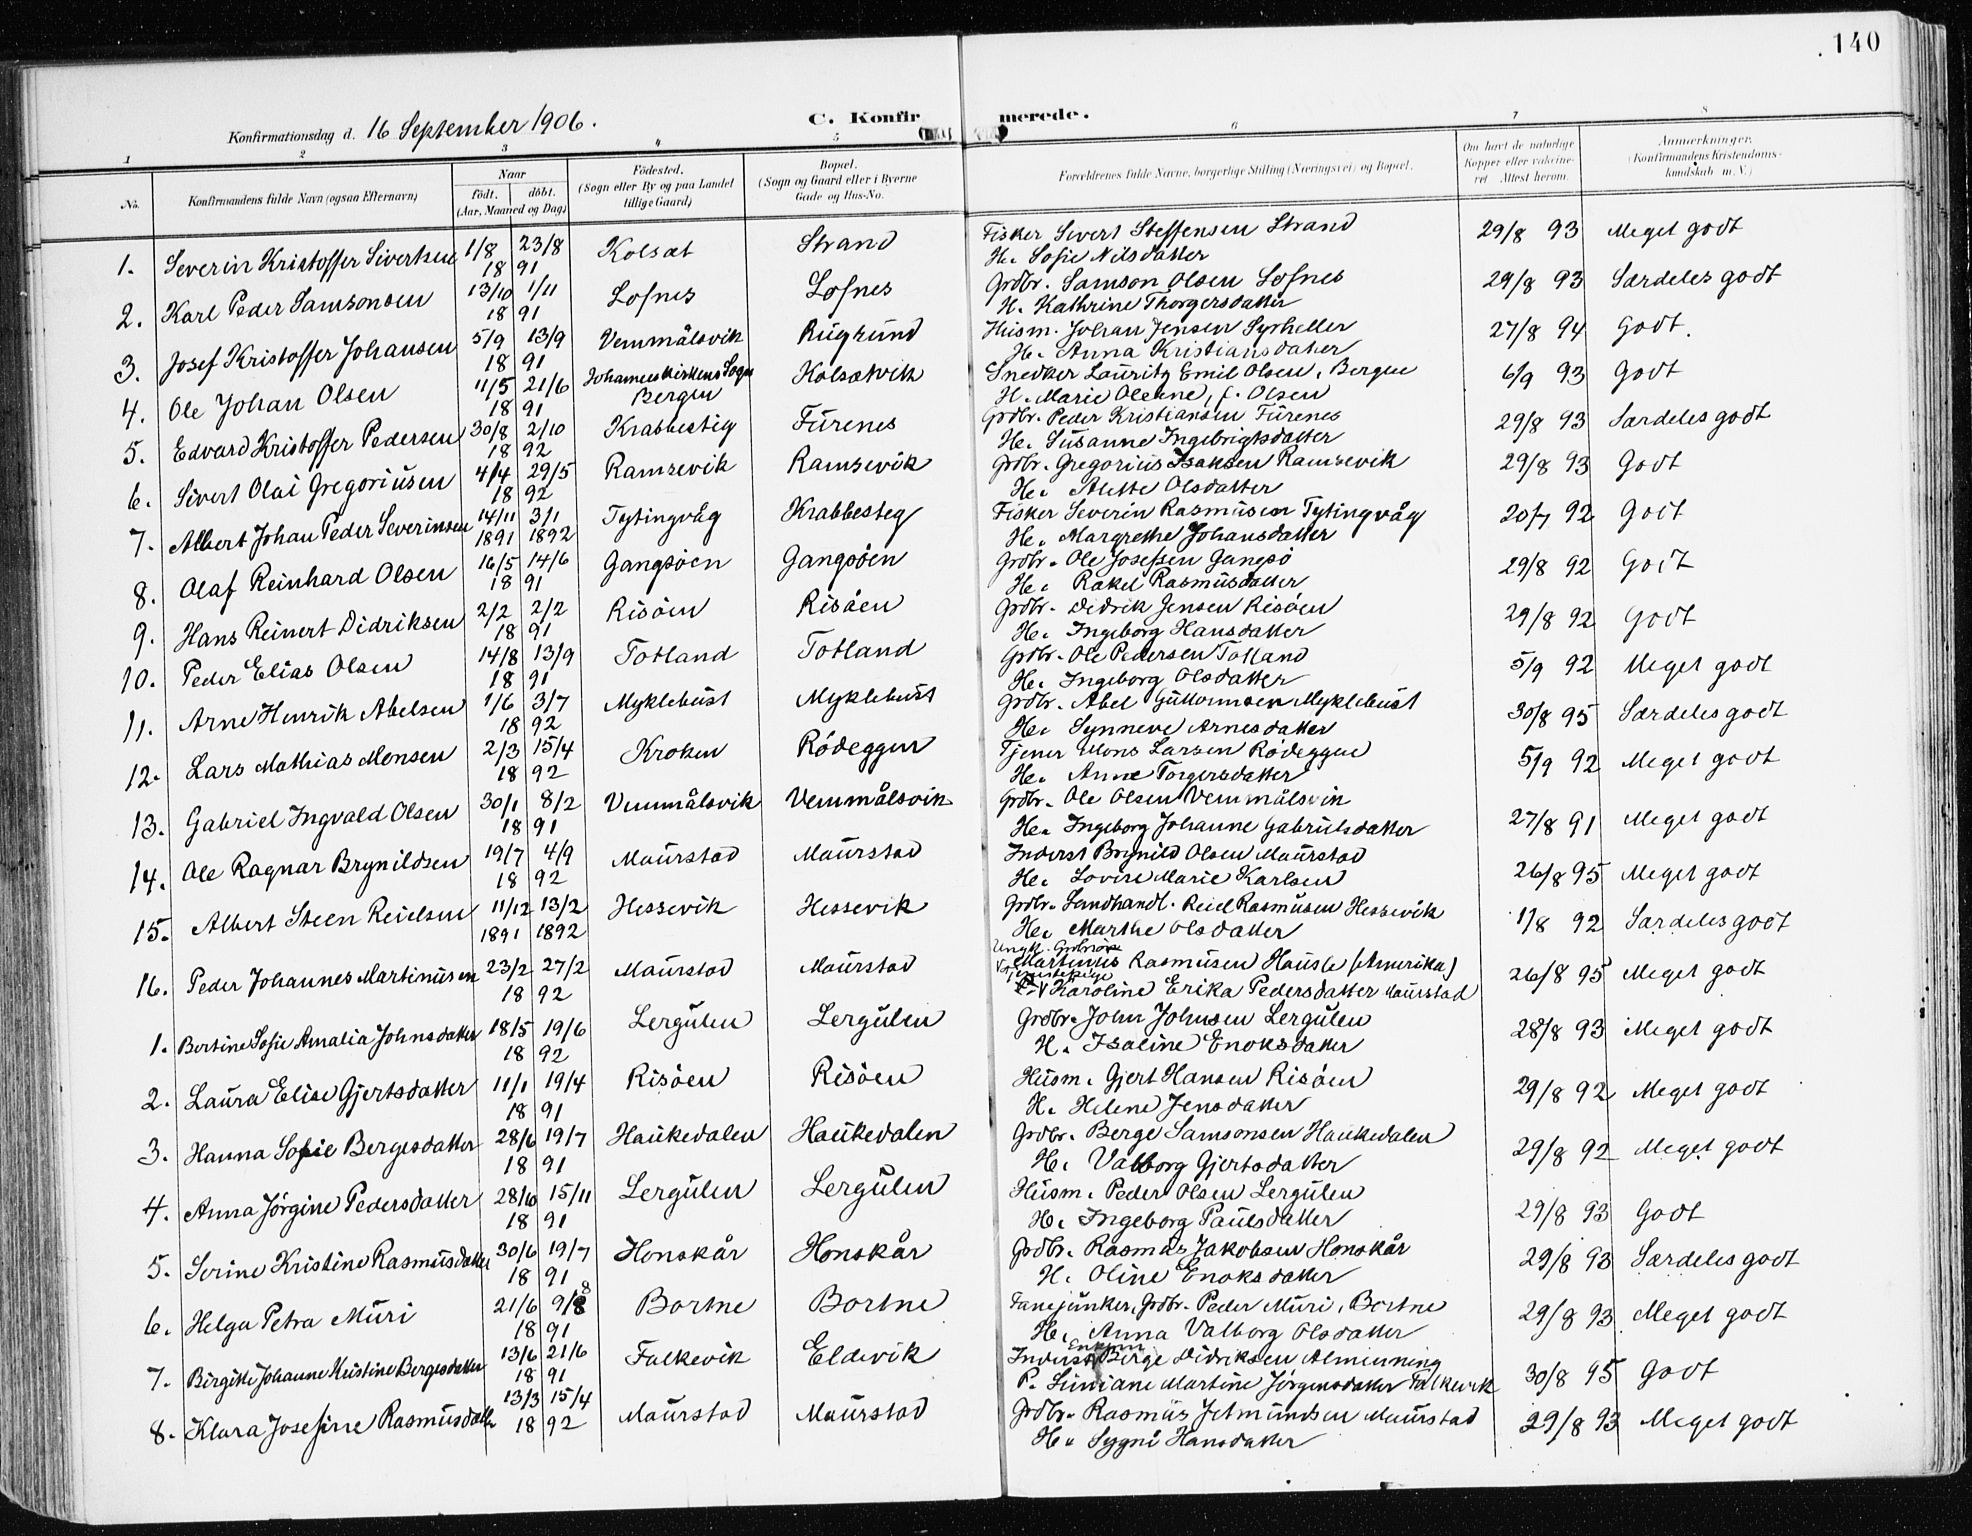 140
Konfirmationsdag d. 16 September 1906.
C. Konfirmerede.
1 2 3 4 5 6 7 8
No.
Konfirmandens fulde Navn (ogsaa Efternavn)
Naar
födt. döbt.
(Aar, Maaned og Dag)
Födested.
(Sogn eller By og paa Landet tillige Gaard)
Bopæl.
(Sogn og Gaard eller i Byerne Gade og Hus-No.
Forældrenes fulde Navne, borgerlige Stilling (Næringsvei) og Bopæl.
Om havt de naturlige Kopper eller vaccineret Attest herom.
Anmerkninger.
(Konfirmandens Kristendomskundskab m. V.)
1. Severin Kristoffer Sivertsen 1/8 1891 23/8 Kolsæt Strand Fisker Sivert Steffensen Strand 29/8 93 Meget godt
H. Sofie Nilsdatter
2. Karl Peder Samsonsen 13/10 1/11 1891 Lofnes Lofnes Grdbr. Samson Olsen Lofnes 29/8 93 Særdeles godt
H. Kathrine Thorgersdatter
3. Josef Kristoffer Johansen 5/9 13/9 1891 Vemmålsvik Rugsund Husm. Johan Jensen Syrheller 27/8 94 Godt.
H. Anna Kristiansdatter
4. Ole Johan Olsen 11/5 21/6 1891 Johanneskirkens Sogn Bergen Kolsætvik Snedker Lauritz Emil Olsen, Bergen 6/9 93 Godt
H. Marie Olehne, f. Olsen
5. Edvard Kristoffer Pedersen 30/8 2/10 1892 Krabbestig Furenes Grdbr. Peder Kristiansen Furenes 29/8 93 Særdeles godt
H. Susanne Ingebrigtsdatter
6. Sivert Olai Gregoriusen 4/4 29/5 1892 Ramsevik Ramsevik Grdbr. Gregorius Isaksen Ramsevik 29/8 93 Godt
H. Alette Olsdatter
7. Albert Johan Peder Severinsen 14/11 1891 3/1 1892 Tytingvåg Krabbesteg Fisker Severin Rasmusen Tytingvåg 20/7 92 Godt
H. Margrethe Johansdatter
8. Olaf Reinhard Olsen 16/5 14/6 1891 Gangsöen Gangsöen Grdbr. Ole Josefsen Gangsö 29/8 92 Godt
H. Rakel Rasmusdatter
9. Hans Reinert Didriksen 2/2 2/2 1891 Risöen Risöen Grdbr. Didrik Jensen Risöen 29/8 92 Godt
H. Ingeborg Hansdatter
10. Peder Elias Olsen 14/8 13/9 1891 Totland Totland Grdbr. Ole Pedersen Totland 5/9 92 Meget godt
H. Ingeborg Olsdatter
11. Arne Henrik Abelsen 1/6 3/7 1892 Myklebust Myklebust Grdbr. Abel Guttormsen Myklebust 30/8 95 Særdeles godt
H. Synneve Arnesdatter
12. Lars Mathias Monsen 2/3 15/4 1892 Kroken Rödeggen Tjener Mons Larsen Rödeggen 5/9 92 Meget godt
H. Anne Torgersdatter
13. Gabriel Ingvald Olsen 30/1 8/2 1891 Vemmålsvik Vemmålsvik Grdbr. Ole Olsen Vemmålsvik 27/8 91 Meget godt
H. Ingeborg Johanne Gabrielsdatter
14. Ole Ragnar Brynildsen 19/7 4/9 1892 Maurstad Maurstad Inderst Brynild Olsen Maurstad 26/8 95 Meget godt
H. Lovise Marie Karlsen
15. Albert Steen Reielsen 11/12 1891 13/2 1892 Hessevik Hessevik Grdbr. Landhandl. Reiel Rasmusen Hessevik 1/8 92 Særdeles godt
H. Marthe Olsdatter
16. Peder Johannes Martinusen 23/2 27/2 1892 Maurstad Maurstad Ungk. Martinus Rasmusen Hausle (Amerika) 26/8 95 Meget godt
Karoline Erika Pedersdatter Maurstad
1. Bertine Sofie Amalia Johnsdatter 18/5 19/6 1892 Lergulen Lergulen Grdbr. John Johnsen Lergulen 28/8 93 Meget godt
H. Isaline Enoksdatter
2. Laura Elise Gjertsdatter 11/1 19/4 1891 Risöen Risöen Husm. Gjert Hansen Risöen 29/8 92 Meget godt
H. Helene Jensdatter
3. Hanna Sofie Bergesdatter 28/6 19/7 1891 Haukedalen Haukedalen Grdbr. Berge Samsonsen Haukedalen 29/8 92 Meget godt
H. Valborg Gjertsdatter
4. Anna Jörgine Pedersdatter 28/10 15/11 1891 Lergulen Lergulen Husm. Peder Olsen Lergulen 29/8 93 Godt
H. Ingeborg Paulsdatter
5. Serine Kristine Rasmusdatter 30/6 19/7 1891 Honskår Honskår Grdbr. Rasmus Jakobsen Honskår 29/8 93 Særdeles godt
H. Oline Enoksdatter
6. Helga Petra Muri 21/6 9/8 1891 Bortne Bortne Fanejunker, Grdbr. Peder Muri, Bortne 29/8 93 Meget godt
H. Anna Valborg Olsdatter
7. Birgitte Johanne Kristine Bergesdatter 13/6 21/6 1891 Falkevik Eldevik Inderst Berge Didriksen Almenning 30/8 95 Godt
P. Liniane Martine Jörgensdatter Falkevik
8. Klara Josefine Rasmusdatter 13/3 15/4 1892 Maurstad Maurstad Grdbr. Rasmus Jetmundsen Maurstad 29/8 93 Meget godt
H. Sygni Hansdatter